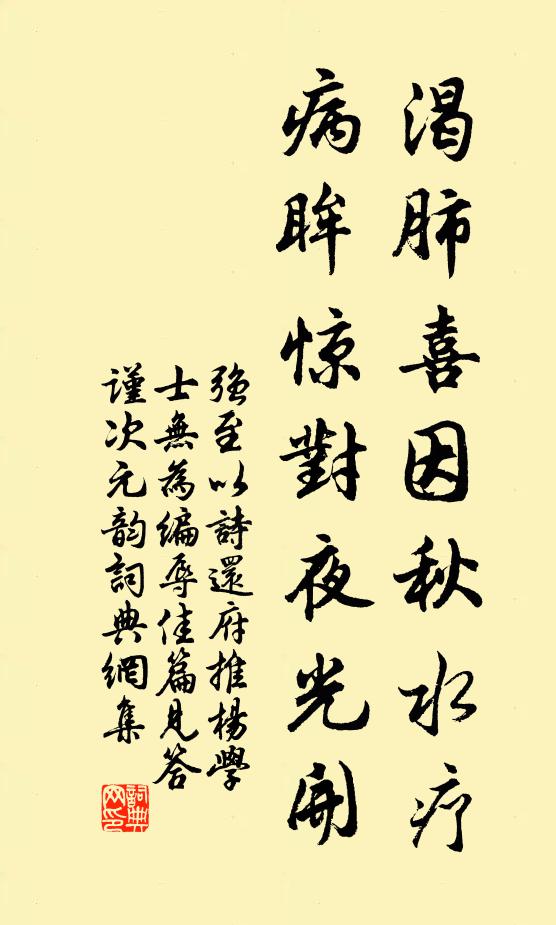 渴肺喜因秋水疗
病眸惊對夜光開
強至以詩還府推楊學
士無為編辱佳篇見答
謹次元韵詞典網集
詞典網印